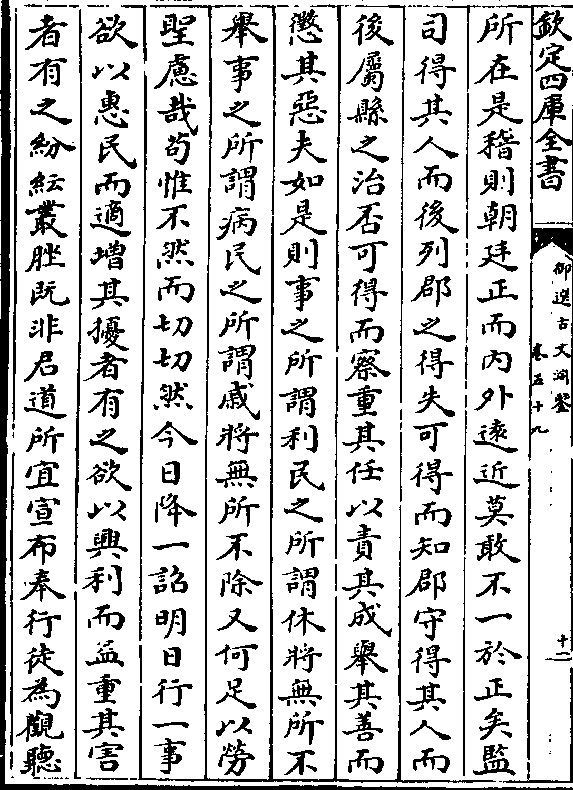 欽定四庫全書
御選古文淵鑒
卷五十九
十二
所在是稽則朝廷正而内外遠近莫敢不一於正矣監
司得其人而後列郡之得失可得而知郡守得其人而
後屬縣之治否可得而察重其任以責其成舉其善而
懲其惡夫如是則事之所謂利民之所謂休將無所不
舉事之所謂病民之所謂戚將無所不除又何足以勞
聖慮哉茍惟不然而切切然今日降一詔明日行一事
欲以惠民而適增其擾者有之欲以興利而益重其害
者有之紛紜叢脞既非君道所宜宣布奉行徒為觀聽